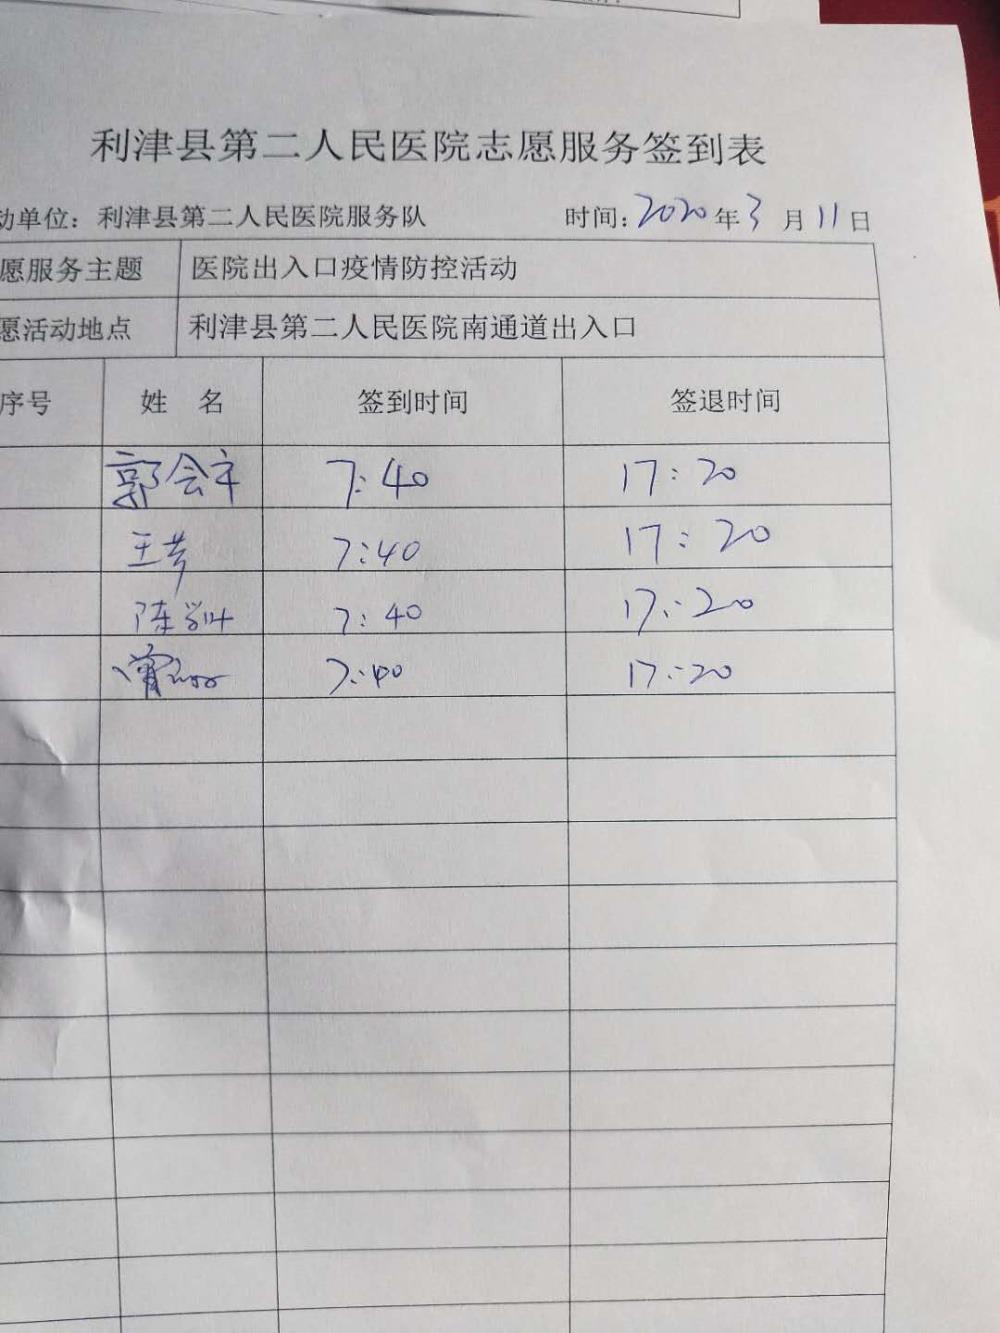 利津县第二人民医院志愿服务签到表
动单位：利津县第二人民医院服务队 时间：2020年3月11日
愿服务主题 医院出入口疫情防控活动
愿活动地点 利津县第二人民医院南通道出入口
序号 姓 名 签到时间 签退时间
郭会 7:40 17:20
王芳 7:40 17:20
陈 7:40 17:20
曾 7:40 17:20